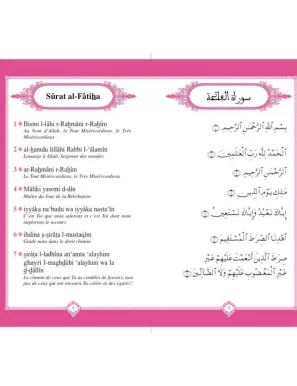 Sūrat al-Fātiḥa
1 Bismi l-lāhi r-Raḥmāni r-Raḥīm
Au Nom d'Allah, le Tout Miséricordieux, le Très
Miséricordieux
2 al-ḥamdu lillāhi Rabbi l-ʿālamīn
Louange à Allah, Seigneur des mondes
3 ar-Raḥmāni r-Raḥīm
Le Tout Miséricordieux, le Très Miséricordieux
4 Māliki yawmi d-dīn
Maître du Jour de la Rétribution
5 iyyāka naʿbudu wa iyyāka nastaʿīn
C'est Toi que nous adorons et c'est Toi dont nous
implorons le secours
6 ihdina ṣ-ṣirāṭa l-mustaqīm
Guide-nous dans le droit chemin
7 ṣirāṭa l-ladhīna anʿamta ʿalayhim
ghayri l-maghḍūbi ʿalayhim wa la
ḍ-ḍāllīn
Le chemin de ceux que Tu as comblés de faveurs, non
pas de ceux qui ont encouru Ta colère et des égarés!
سورة الفاتحة
بِسْمِ ٱللَّهِ ٱلرَّحْمَٰنِ ٱلرَّحِيمِ
ٱلْحَمْدُ لِلَّهِ رَبِّ ٱلْعَٰلَمِينَ
ٱلرَّحْمَٰنِ ٱلرَّحِيمِ
مَٰلِكِ يَوْمِ ٱلدِّينِ
إِيَّاكَ نَعْبُدُ وَإِيَّاكَ نَسْتَعِينُ
ٱهْدِنَا ٱلصِّرَٰطَ ٱلْمُسْتَقِيمَ
صِرَٰطَ ٱلَّذِينَ أَنْعَمْتَ عَلَيْهِمْ غَيْرِ
ٱلْمَغْضُوبِ عَلَيْهِمْ وَلَا ٱلضَّآلِّينَ